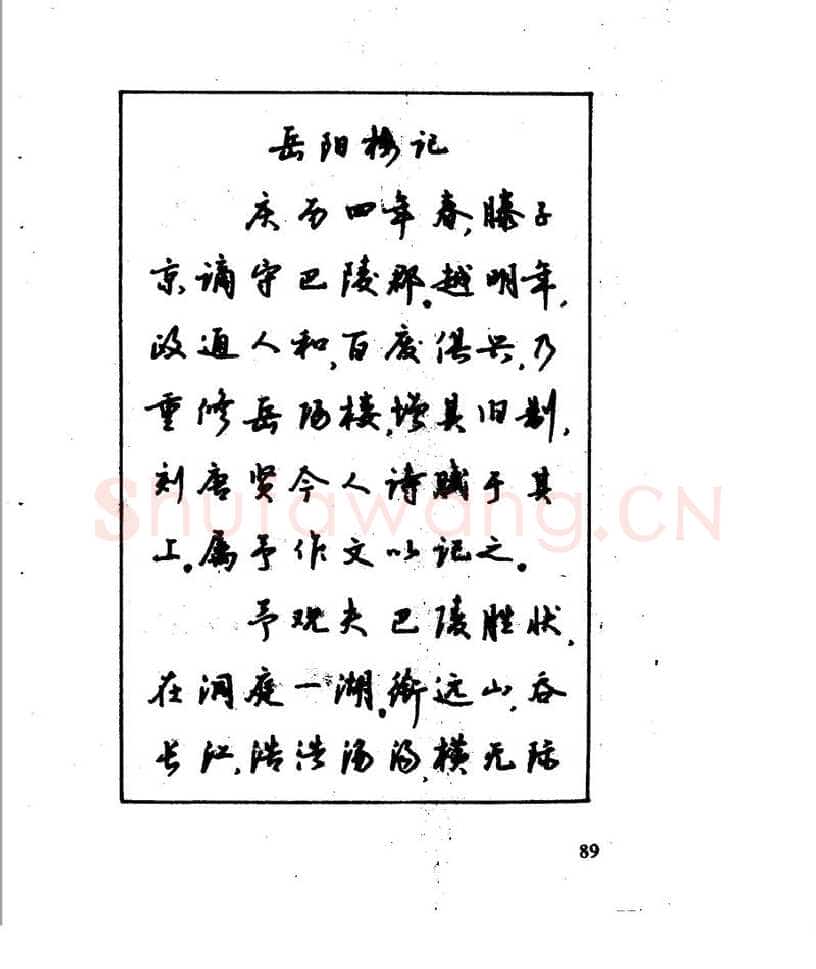 岳阳楼记
庆历四年春,滕子
京谪守巴陵郡。越明年,
政通人和,百废俱兴,乃
重修岳阳楼,增其旧制,
刻唐贤今人诗赋于其
上。属予作文以记之。
予观夫巴陵胜状,
在洞庭一湖。衔远山,吞
长江,浩浩汤汤,横无际
Shufawang.CN
89